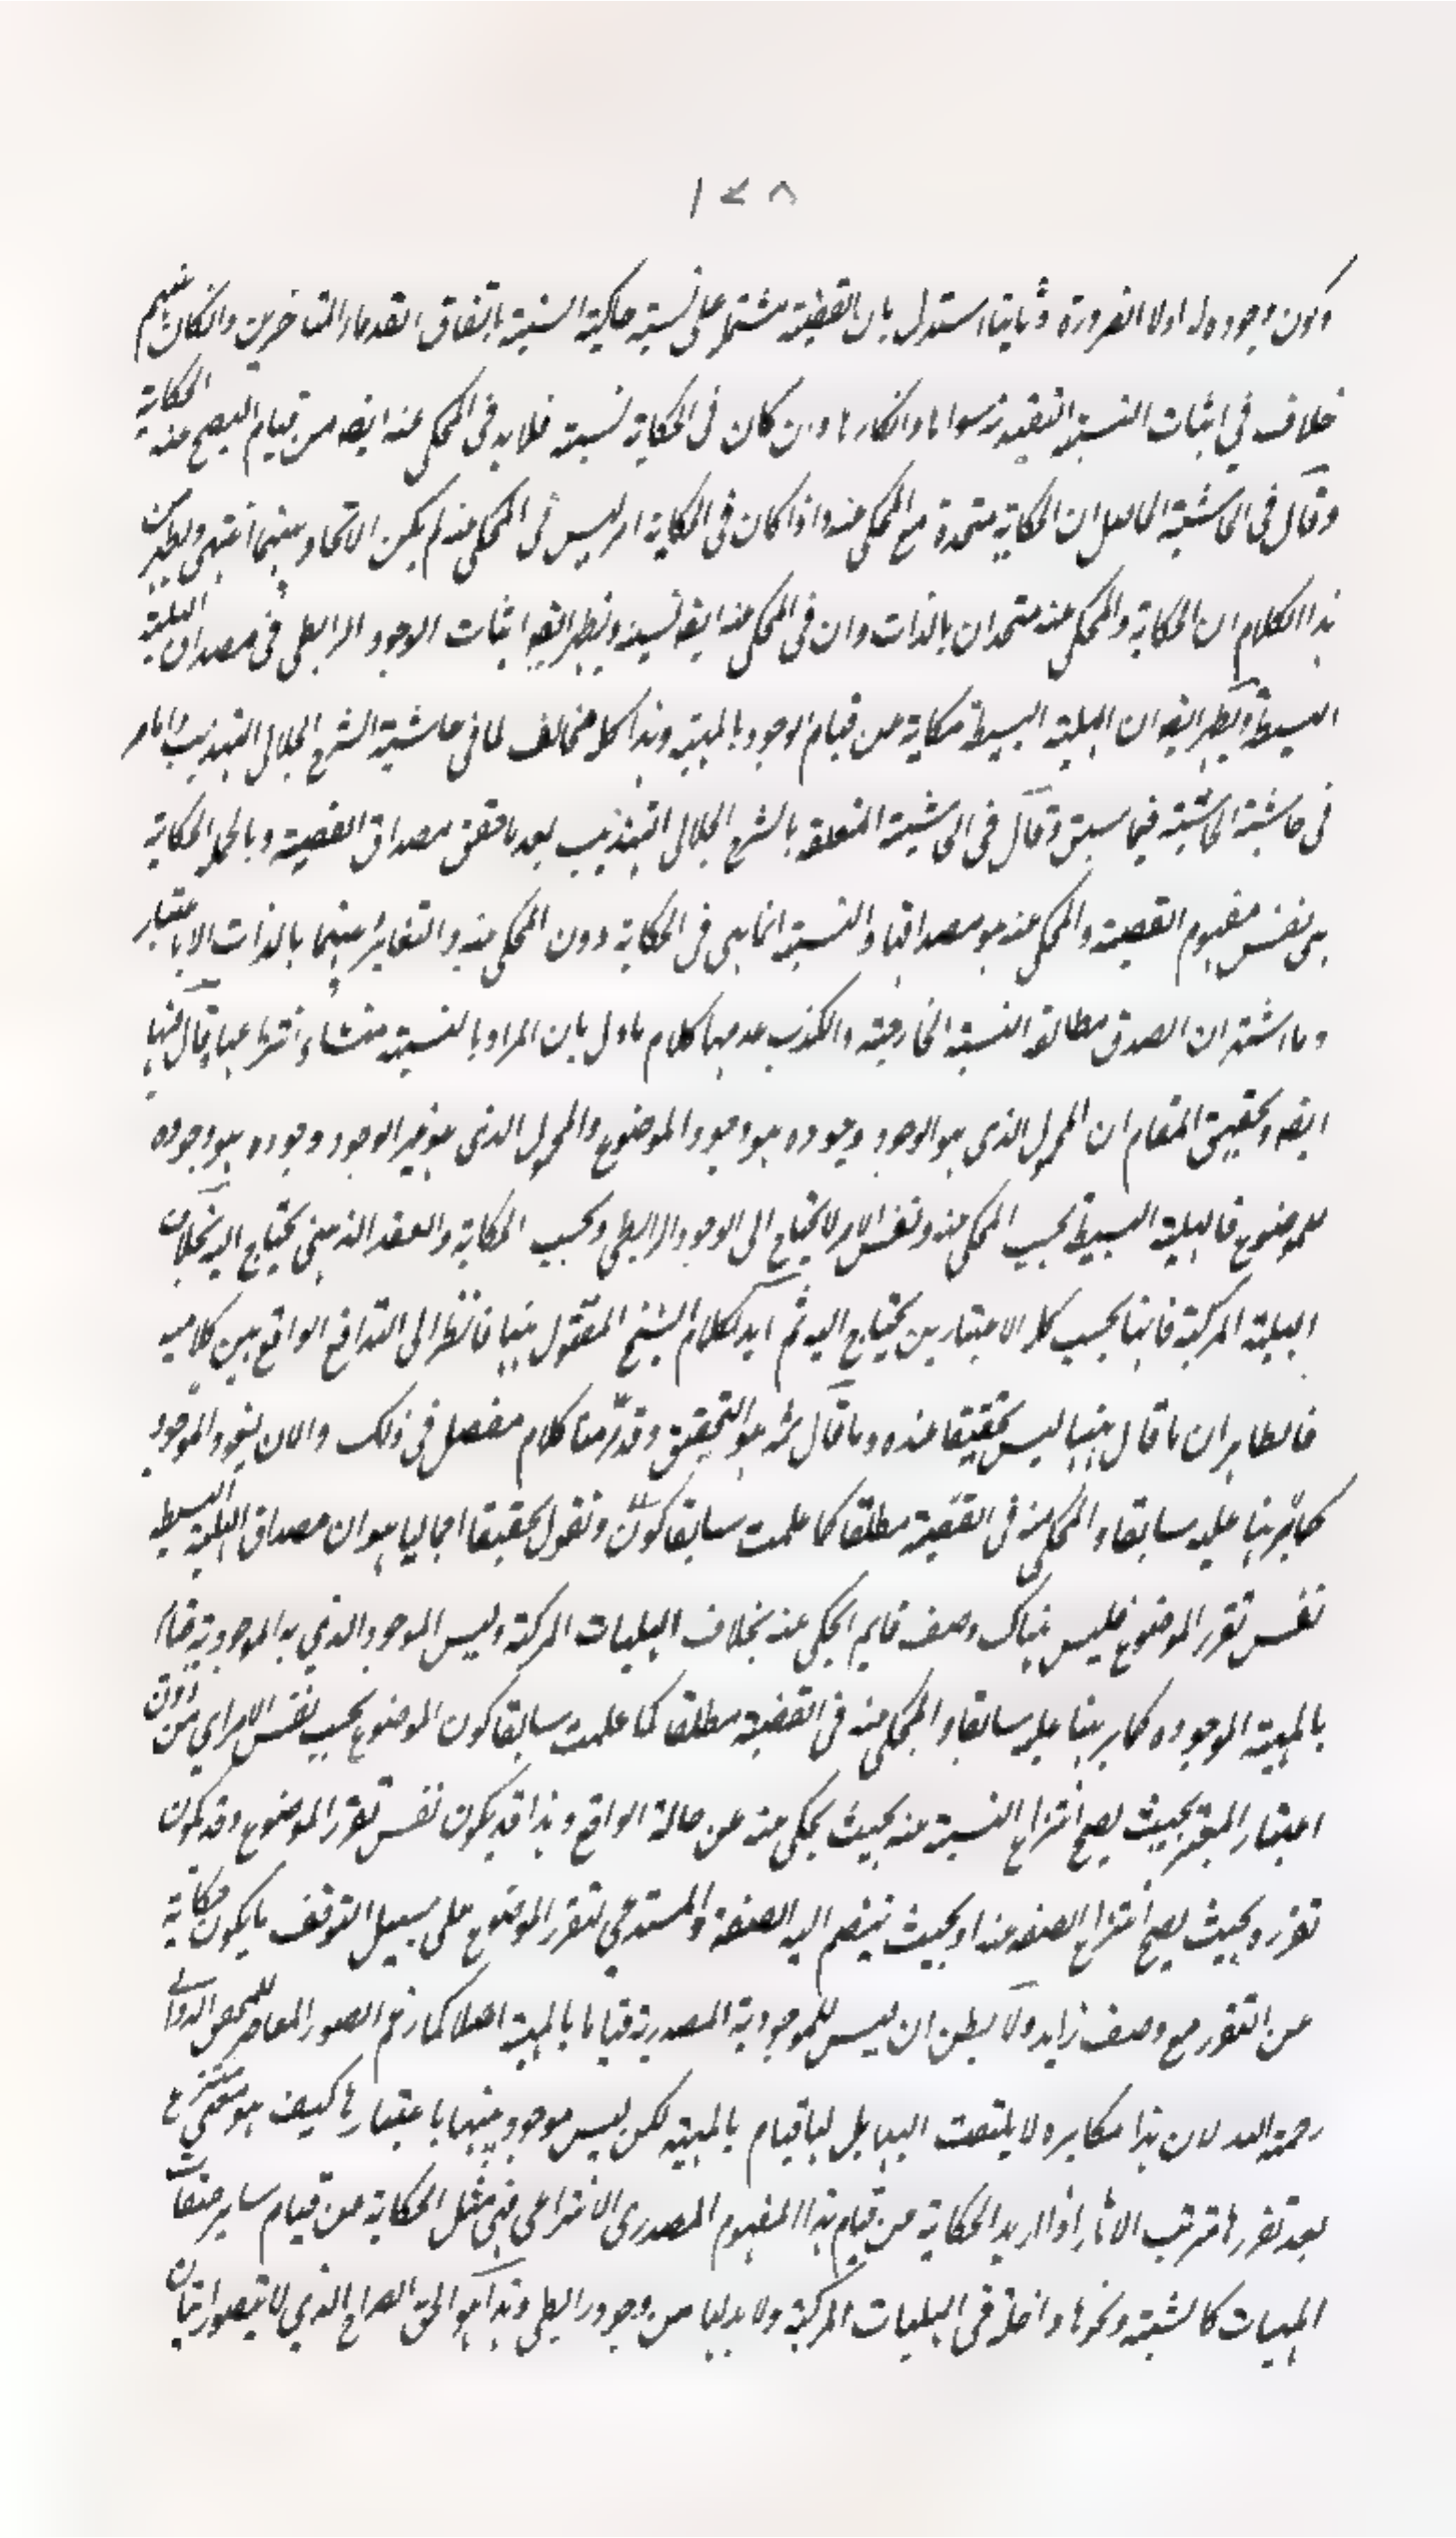 ١٢٨
وكون وجوده له اولا الضرورة وثانيا استدل بان القضية مشتملة على نسبة حاكية البتة باتفاق القدماء والمتاخرين وانكان بينهم
خلاف في اثبات النسبة التقييدية سواها وانكارها وان كان في الحكاية نسبة فلا بد في المحكى عنه ايضا من قيام ليصح عنه الحكاية
وقال في الحاشية الحاصل ان الحكاية متحدة مع المحكى عنه واذا كان في الحكاية امر ليس في المحكى عنه لم يكن الاتحاد بينهما انتهى ويظهر من
هذا الكلام ان الحكاية والمحكى عنه متحدان بالذات وان في المحكى عنه ايضا نسبة ويظهر ايضا اثبات الوجود الرابطى في مصداق الهلية
البسيطة ويظهر ايضا ان الهلية البسيطة حكاية من قيام الوجود بالمهية وهذا كله مخالف لما في حاشية الشرح الجلالى التهذيب
في حاشية الحاشية فيما سبق وقال في الحاشية المتعلقة بالشرح الجلالى التهذيب بعد ما حقق مصداق القضية وبالجملة الحكاية
هى نفس مفهوم القضية والمحكى عنه هو مصداقها والنسبة انما هى في الحكاية دون المحكى عنه والتغاير بينهما بالذات لا باعتبار
وما اشتهر ان الصدق مطابقة النسبة الخارجية والكذب عدمها كلام ماول بان المراد بالنسبة منشاء انتزاعها وقال فيها
ايضا وتحقيق المقام ان المحمول الذى هو الوجود وجوده هو وجود الموضوع والمحمول الذى هو غير الوجود وجوده هو وجوده
للموضوع فالهلية البسيطة بحسب المحكى عنه ونفس الامر لا يحتاج الى الوجود الرابطى وبحسب الحكاية والعقد الذهنى يحتاج اليه بخلاف
الهلية المركبة فانها بحسب كلا الاعتبارين يحتاج اليه ثم ايد كلام الشيخ المقتول ههنا فانظر الى التدافع الواقع بين كلاميه
فالظاهر ان ما قال ههنا ليس تحقيقا عنده وما قال ثمه هو التحقيق وقد مر منا كلام مفصل في ذلك والان
سابقا والمحكى عنه في القضية مطلقا كما علمت سابقا كون ونقول تحقيقا اجماليا هو ان مصداق الهلية البسيطة
نفس تقرر الموضوع فليس هناك وصف قايم يحكى عنه بخلاف الهليات المركبة وليس الموجود الذي به الموجودية قايما
بالمهية الموجوده كما برهنا عليه سابقا والمحكى عنه في القضية مطلقا كما علمت سابقا كون الموضوع بحسب نفس الامر اي من دون
اعتبار المعتبر بحيث يصح انتزاع النسبة عنه بحيث يحكى عنه عن حالة الواقع وهذا قد يكون نفس تقرر الموضوع وقد يكون
تقرره بحيث يصح انتزاع الصفه عنه او بحيث ينضم اليه الصفة والمستدعى لتقرر الموضوع على سبيل التوقف ما يكون حكاية
عن التقرر مع وصف زايد ولا يظن ان ليس للموجودية المصدرية قياما بالمهية اصلا كما زعم الصدر المعاصر للمحقق الدواني
رحمة الله لان هذا مكابره لا يلتفت اليها بل لها قيام بالمهية لكن ليس موجوديتها باعتبارها كيف هو معنى منتزع
بعد تقررها وترتب الاثار واذا اريد الحكاية من قيام هذا المفهوم المصدرى الانتزاعى فهى مثل الحكاية من قيام ساير صفات
المهيات كالشيئية ونحوها داخلة في الهليات المركبة ولا بد لها من وجود رابطى وهذا هو الحق الصراح الذي لا يتصور اتيان